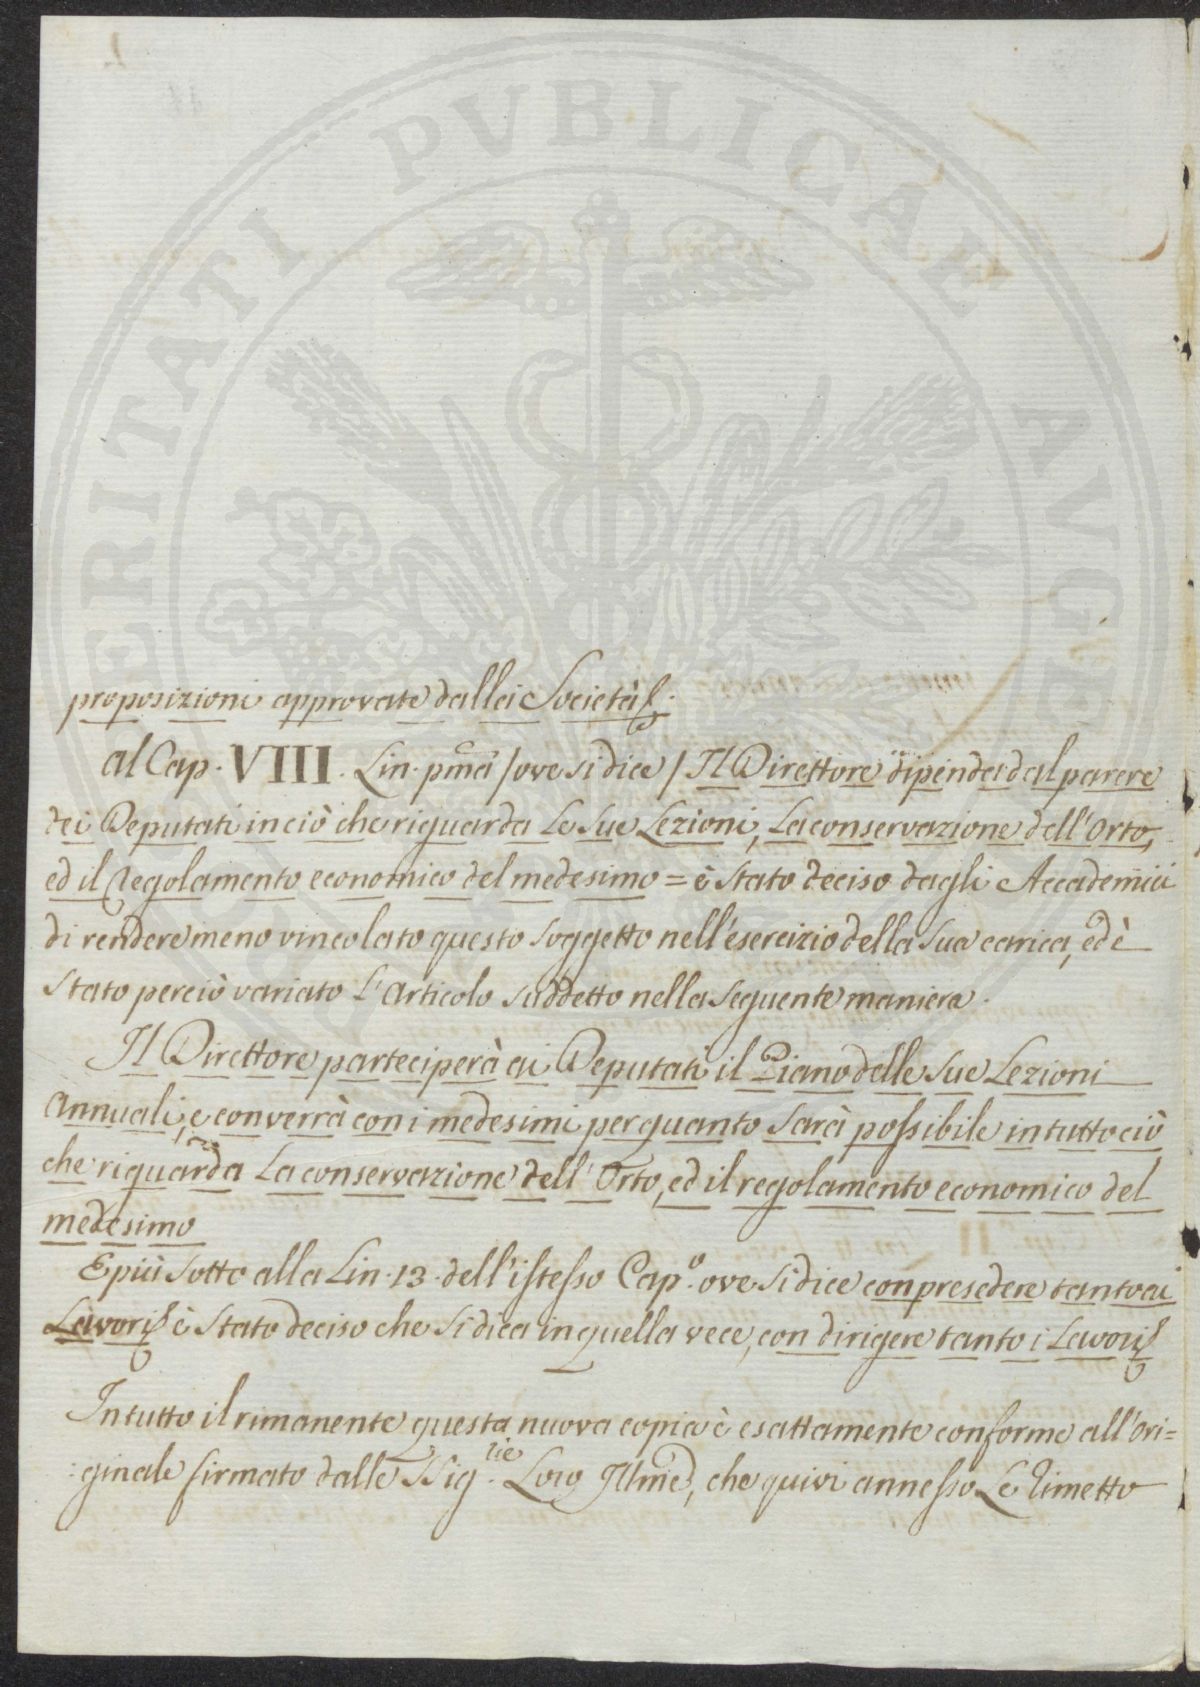 PROSPERITATI PUBLICAE AUGENDAE
proposizioni approvate dalla Società.
al Cap. VIII. Lin. pma / ove si dice / Il Direttore dipenda dal parere
dei Deputati in ciò che riguarda le sue Lezioni, La conservazione dell'Orto,
ed il Regolamento economico del medesimo = è stato deciso dagli Accademici
di rendere meno vincolato questo soggetto nell'esercizio della sua carica, ed è
stato perciò variato l'Articolo suddetto nella seguente maniera.
Il Direttore parteciperà ai Deputati il Piano delle sue Lezioni
Annuali, e converrà con i medesimi per quanto sarà possibile in tutto ciò
che riguarda La conservazione dell'Orto, ed il regolamento economico del
medesimo
E più sotto alla Lin. 13. dell'istesso Capo. ove si dice con presedere tanto ai
Lavori è stato deciso che si dica in quella vece, con dirigere tanto i Lavori
In tutto il rimanente questa nuova copia è esattamente conforme all'Ori=
:ginale firmato dalle SSig.rie Loro Illme, che quivi annesso Le rimetto